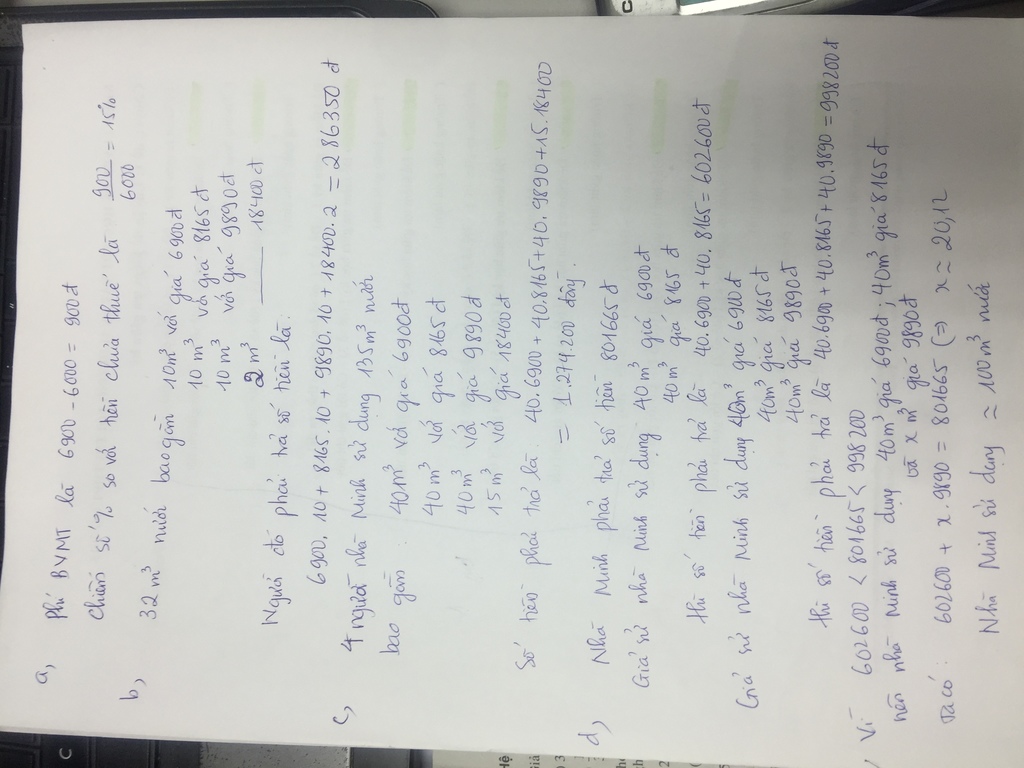 a, Phí BVMT là 6900 - 6000 = 900đ
Chiếm số % so với tiền chưa thuế là 900/6000 = 15%
b, 32 m³ nước bao gồm 10m³ với giá 6900đ
10 m³ với giá 8165đ
10 m³ với giá 9890đ
2 m³ ___ 18400đ
Người đó phải trả số tiền là:
6900.10 + 8165.10 + 9890.10 + 18400.2 = 286350 đ
c, 4 người nhà Minh sử dụng 135m³ nước
bao gồm: 40m³ với giá 6900đ
40 m³ với giá 8165đ
40 m³ với giá 9890đ
15 m³ với giá 18400đ
Số tiền phải trả là: 40.6900 + 40.8165 + 40.9890 + 15.18400
= 1.274200 đồng.
d, Nhà Minh phải trả số tiền 801665đ
Giả sử nhà Minh sử dụng 40m³ giá 6900đ
40m³ giá 8165 đ
thì số tiền phải trả là 40.6900 + 40.8165 = 602600đ
Giả sử nhà Minh sử dụng 40m³ giá 6900đ
40m³ giá 8165đ
40m³ giá 9890đ
thì số tiền phải trả là 40.6900 + 40.8165 + 40.9890 = 998200đ
Vì 602600 < 801665 < 998200
nên nhà Minh sử dụng 40m³ giá 6900đ; 40m³ giá 8165đ
và x m³ giá 9890đ
Ta có: 602600 + x.9890 = 801665 (=> x ≈ 20,12
Nhà Minh sử dụng ≈ 100m³ nước